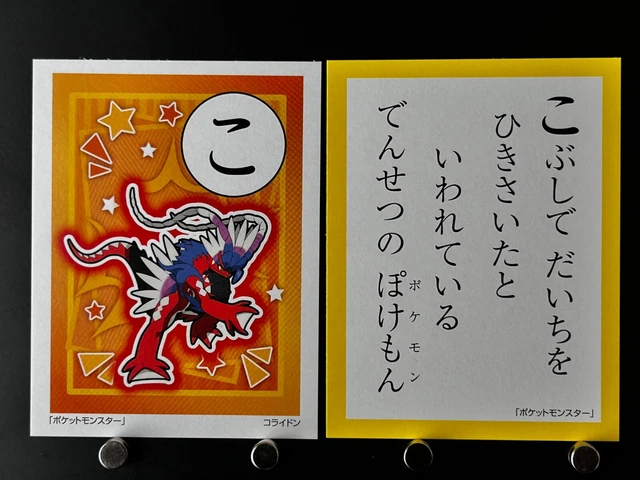 こ
「ポケットモンスター」
コライドン
こぶしで だいちを
ひきさいたと
いわれている
でんせつの ぽけもん
ポケモン
「ポケットモンスター」